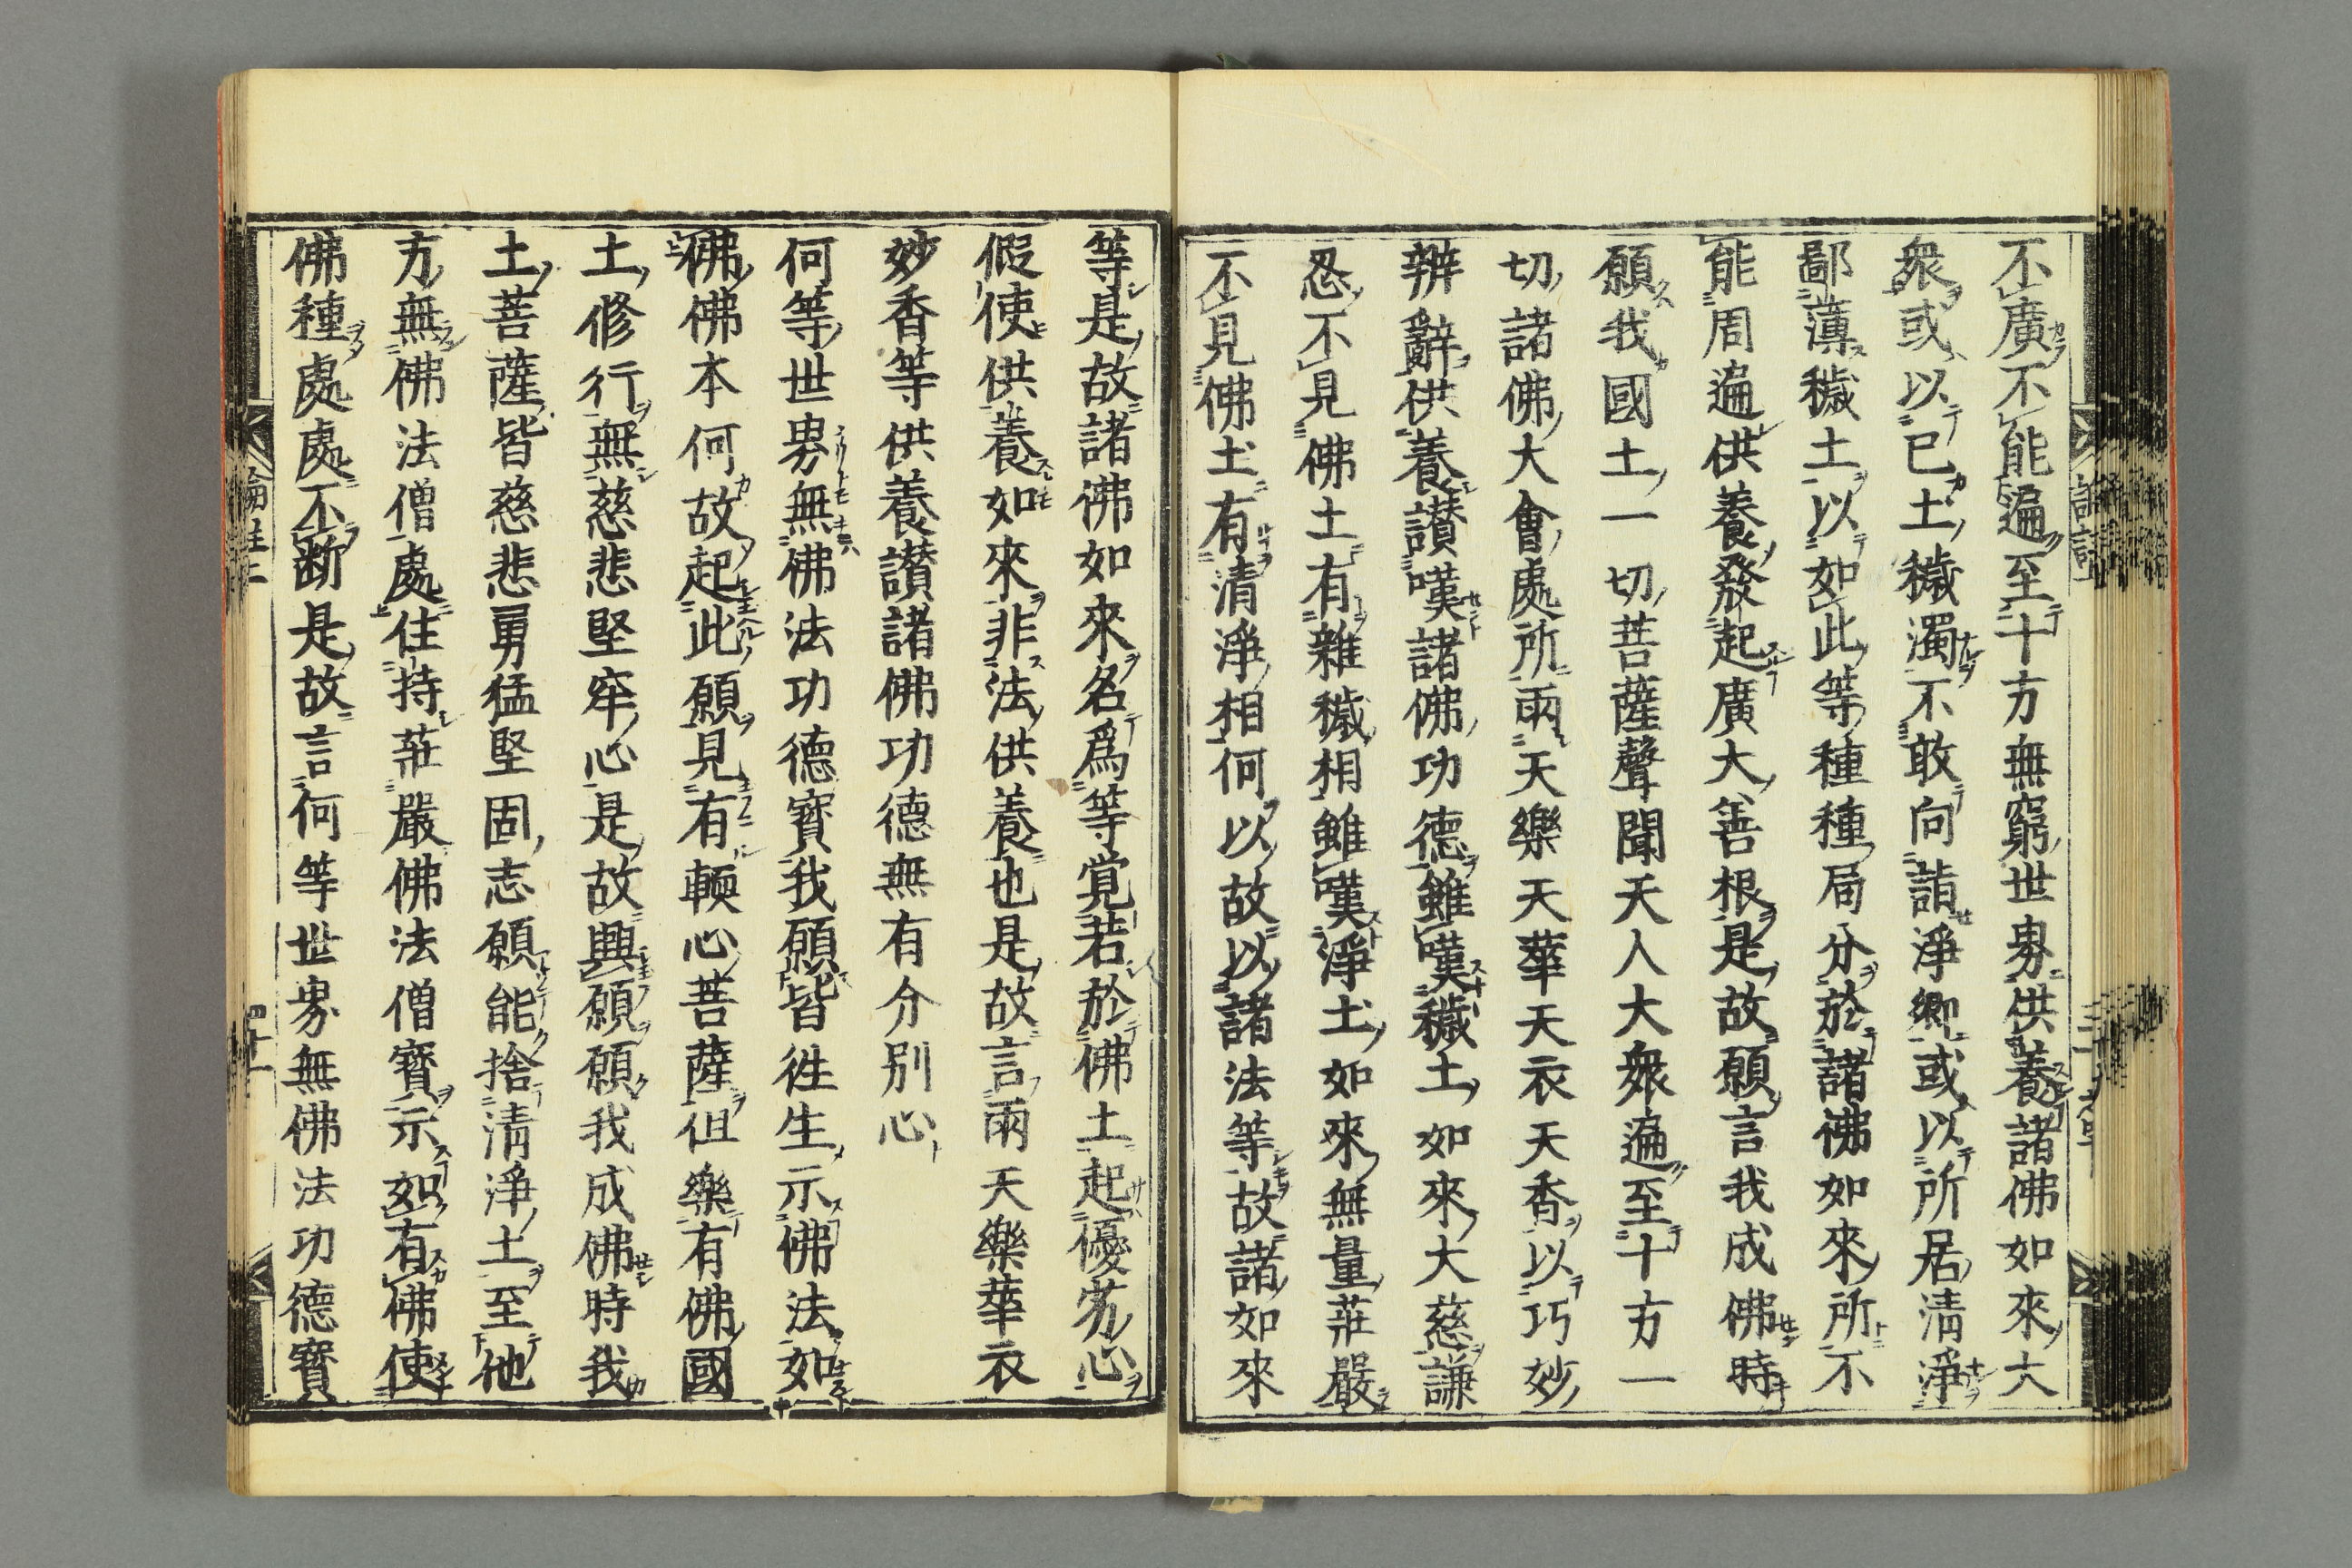 不廣不能遍至十方無窮世界供養諸佛如來大
衆或以已土穢濁不敢向詣淨鄉或以所居清淨
鄙薄穢土以如此等種種局分於諸佛如來所不
能周遍供養發起廣大善根是故願言我成佛時
願我國土一切菩薩聲聞天人大衆遍至十方一
切諸佛大會處所雨天樂天華天衣天香以巧妙
辨辭供養讃嘆諸佛功德雖嘆穢土如來大慈謙
忍不見佛土有雜穢相雖嘆淨土如來無量莊嚴
不見佛土有清淨相何以故以諸法等故諸如來
等是故諸佛如來名爲等覚若於佛土起優劣心
假使供養如來非法供養也是故言雨天樂華衣
妙香等供養讃諸佛功德無有分别心
何等世界無佛法功德寳我願皆徃生示佛法如
佛佛本何故起此願見有輭心菩薩但樂有佛國
土修行無慈悲堅牢心是故興願願我成佛時我
土菩薩皆慈悲勇猛堅固志願能捨清淨土至他
方無佛法僧處住持莊嚴佛法僧寳示如有佛使
佛種處處不断是故言何等世界無佛法功德寳